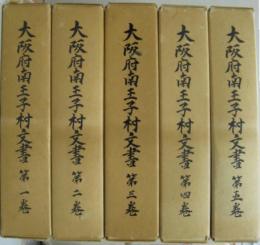 大阪府南王子村文書 第一巻
大阪府南王子村文書 第二巻
大阪府南王子村文書 第三巻
大阪府南王子村文書 第四巻
大阪府南王子村文書 第五巻